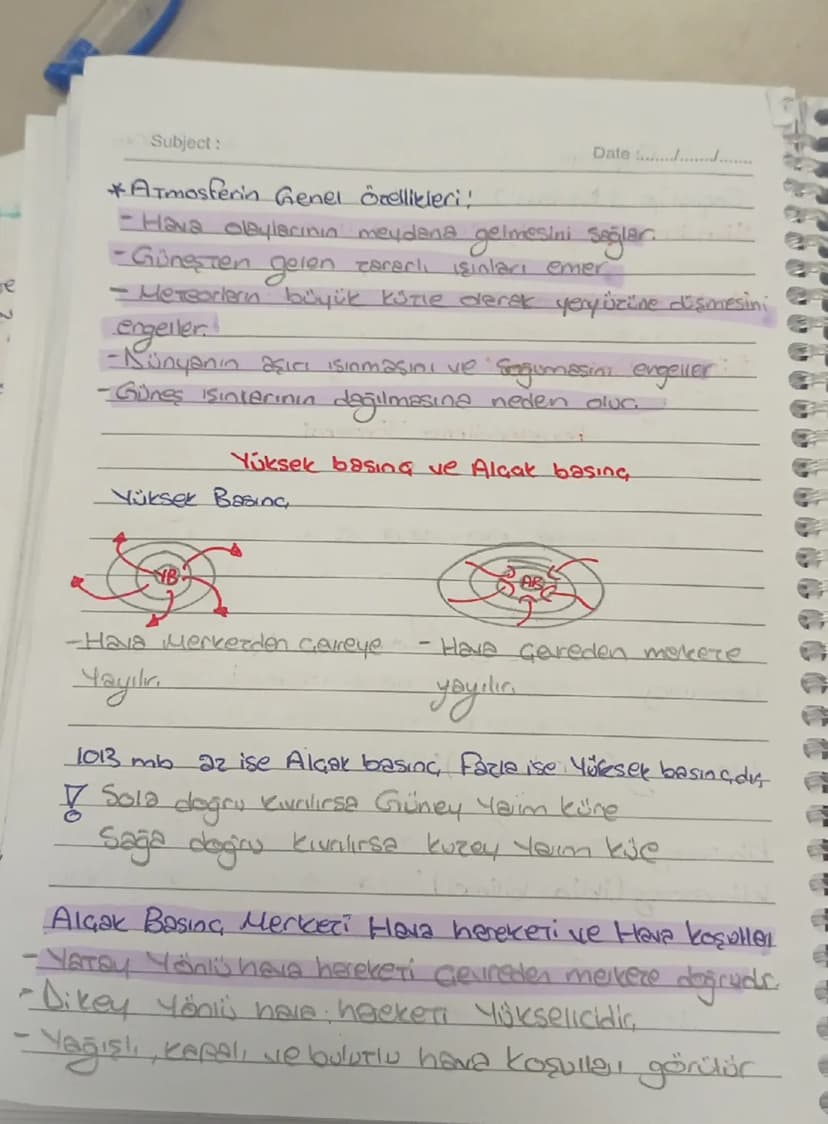 Subject :
Date :....../......./.......
*Atmosferin Genel Özellikleri!
-Hava olaylarının meydana gelmesini sağlar.
-Güneşten gelen zararlı ışınları emer.
-Meteorların büyük kütle olarak yeryüzüne düşmesini
engeller.
-Dünyanın aşırı ısınmasını ve soğumasını engeller
-Güneş ışınlarının dağılmasına neden olur.
Yüksek basınç ve Alçak basınç
Yüksek Basınç
YB
AB
-Hava Merkezden Çevreye
Yayılır.
-Hava Çevreden merkeze
yayılır.
1013 mb az ise Alçak basınç, Fazla ise Yüksek basınçdır
! Sola doğru kıvrılırsa Güney Yarım küre
Sağa doğru kıvrılırsa kuzey Yarım küre
Alçak Basınç Merkezi Hava hareketi ve Hava koşulları
-Yatay Yönlü hava hareketi Çevreden merkeze doğrudur.
-Dikey Yönlü hava hareketi Yükselicidir,
-Yağışlı, kapalı, ve bulutlu hava koşulları görülür